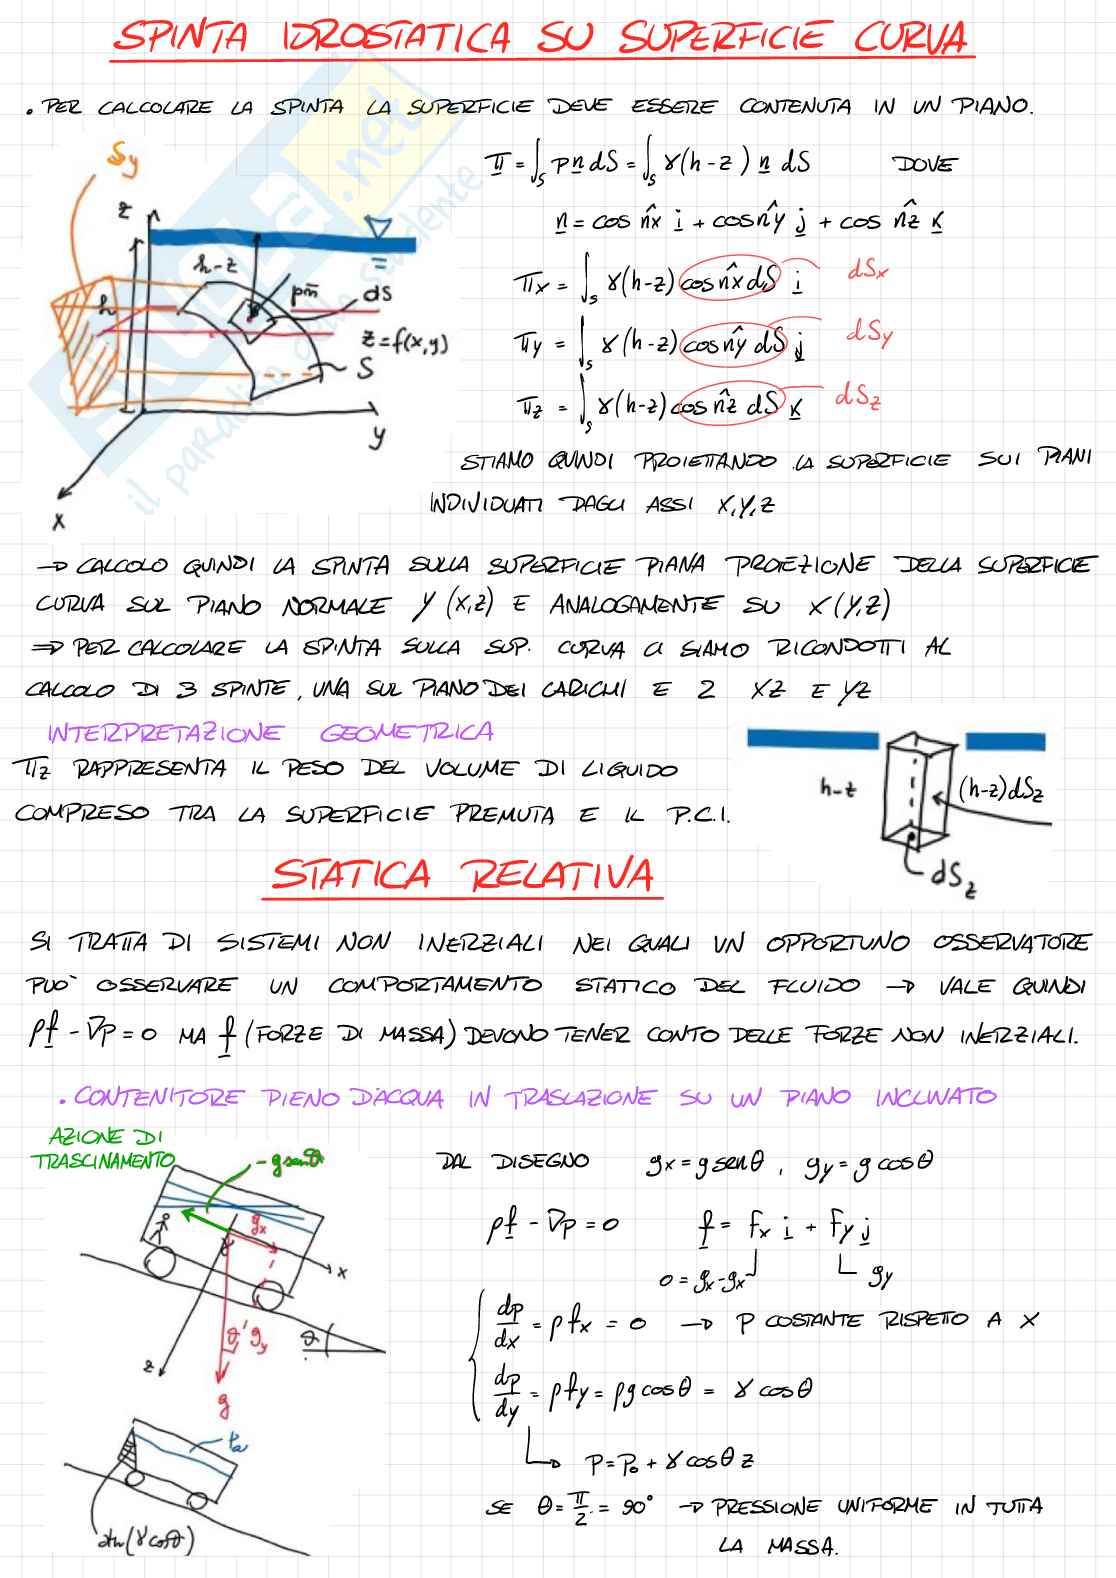 SPINTA IDROSTATICA SU SUPERFICIE CURVA
. PER CALCOLARE LA SPINTA LA SUPERFICIE DEVE ESSERE CONTENUTA IN UN PIANO.
Sy
z
h-z
h
pn̄
dS
z=f(x,y)
S
y
x
Π = ∫s p n dS = ∫s γ(h-z) n dS DOVE
n = cos n̂x i + cos n̂y j + cos n̂z k
Πx = ∫s γ(h-z) cos n̂x dS i dSx
Πy = ∫s γ(h-z) cos n̂y dS j dSy
Πz = ∫s γ(h-z) cos n̂z dS k dSz
STIAMO QUINDI PROIETTANDO LA SUPERFICIE SUI PIANI
INDIVIDUATI DAGLI ASSI X,Y,Z
→ CALCOLO QUINDI LA SPINTA SULLA SUPERFICIE PIANA PROIEZIONE DELLA SUPERFICIE
CURVA SUL PIANO NORMALE Y (X,Z) E ANALOGAMENTE SU X (Y,Z)
⇒ PER CALCOLARE LA SPINTA SULLA SUP. CURVA CI SIAMO RICONDOTTI AL
CALCOLO DI 3 SPINTE, UNA SUL PIANO DEI CARICHI E 2 XZ E YZ
INTERPRETAZIONE GEOMETRICA
Πz RAPPRESENTA IL PESO DEL VOLUME DI LIQUIDO
COMPRESO TRA LA SUPERFICIE PREMUTA E IL P.C.I.
h-z
(h-z)dSz
dSz
STATICA RELATIVA
SI TRATTA DI SISTEMI NON INERZIALI NEI QUALI UN OPPORTUNO OSSERVATORE
PUO' OSSERVARE UN COMPORTAMENTO STATICO DEL FLUIDO → VALE QUINDI
ρf - ∇p = 0 MA f (FORZE DI MASSA) DEVONO TENER CONTO DELLE FORZE NON INERZIALI.
. CONTENITORE PIENO D'ACQUA IN TRASLAZIONE SU UN PIANO INCLINATO
AZIONE DI
TRASCINAMENTO
-g senθ
gx
x
ϑ
gy
ϑ
z
g
Pa
γ cosθ)
DAL DISEGNO gx = g senθ , gy = g cosθ
ρf - ∇p = 0 f = fx i + fy j
0 = gx-gx gy
dp/dx = ρ fx = 0 → P COSTANTE RISPETTO A X
dp/dy = ρfy = ρg cosθ = γ cosθ
P = P0 + γ cosθ z
SE θ = π/2 = 90° → PRESSIONE UNIFORME IN TUTTA
LA MASSA.
SKUOLA.net
il paradiso dello studente